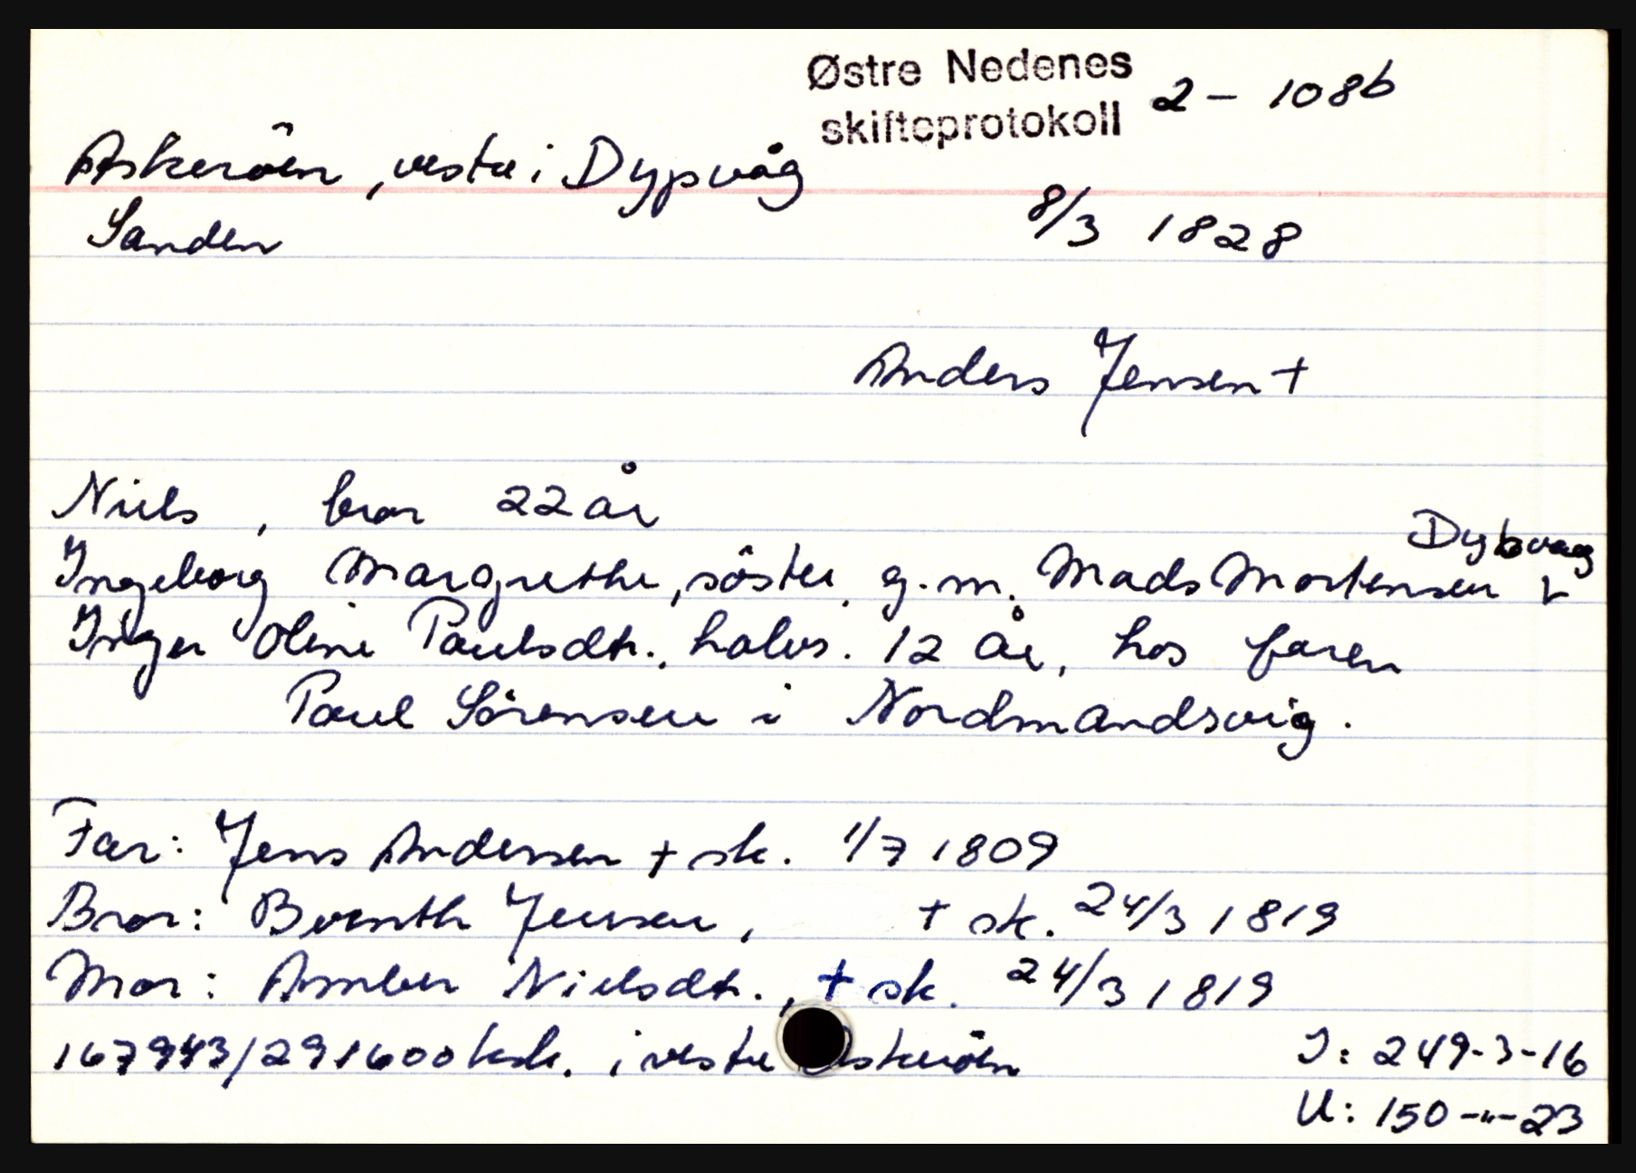 Østre Nedenes
skifteprotokoll 2 - 108b
Askeröen, vestre i Dypvåg
Sanden 8/3 1828
Anders Jensen +
Niels, bror 22 år
Dybvaag
Ingeborg Margrethe, söster, g.m. Mads Mortensen i
Inger Oline Paulsdtr., halvs. 12 år, hos faren
Paul Sörensen i Nordmandsvig.
Far: Jens Andersen + sk. 1/7 1809
Bror: Bernth Jensen, + sk. 24/3 1819
Mor: Amber Nielsdtr., + sk. 24/3 1819
167943/291600 hsk. i vestre Askeröen
I: 249-3-16
U: 150-"-23